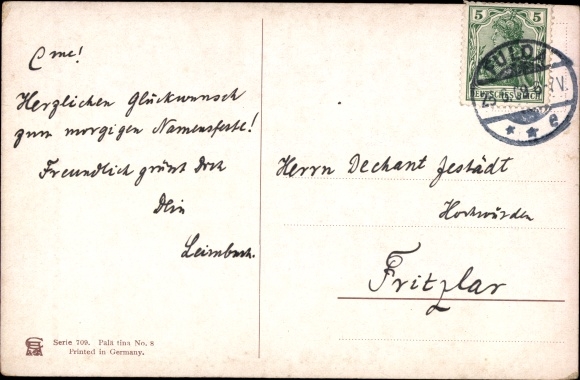 C me!
Herzlichen Glückwunsch
zum morgigen Namensfeste!
Freundlich grüßt Dich
Dein
Leimbach.
Herrn Dechant Jestädt
Hochwürden
Fritzlar
5 5
DEUTSCHES REICH
FULDA
e
Serie 709. Pala tina No. 8
Printed in Germany.